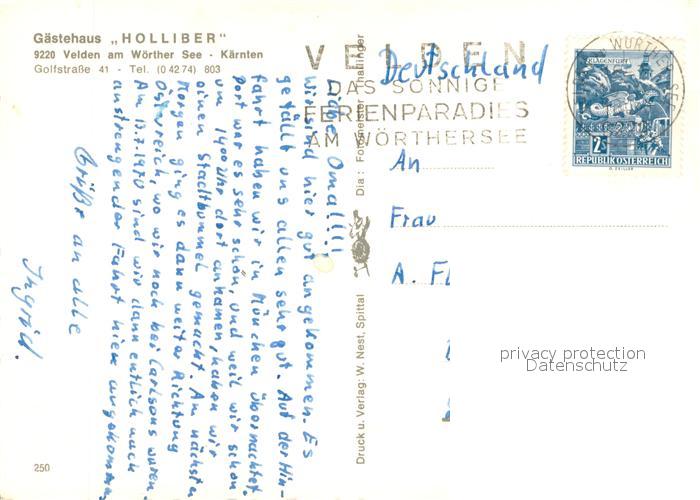 Gästehaus „HOLLIBER"
9220 Velden am Wörther See - Kärnten
Golfstraße 41 - Tel. (0 42 74) 803
Liebe Oma!!!!
Wir sind hier gut angekommen. Es
gefällt uns allen sehr gut. Auf der Hin-
fahrt haben wir in München übernachtet.
Dort war es sehr schön, und weil wir schon
um 1900 Uhr dort ankamen, haben wir
einen Stadtbummel gemacht. Am nächsten
Morgen ging es dann weiter Richtung
Österreich, wo wir noch bei Carlsons waren.
Am 13.7.1970 sind wir dann entlich nach
anstrengender Fahrt hier angekommen.
Grüße an alle
Ingrid.
250
Druck u. Verlag: W. Nest, Spittal
Dia: Fotomeister Thaflinger
VELDEN
DAS SONNIGE
FERIENPARADIES
AM WÖRTHERSEE
WÖRTHER SEE
KLAGENFURT
2S
REPUBLIK ÖSTERREICH
Deutschland
An
Frau
A. Fl
privacy protection
Datenschutz